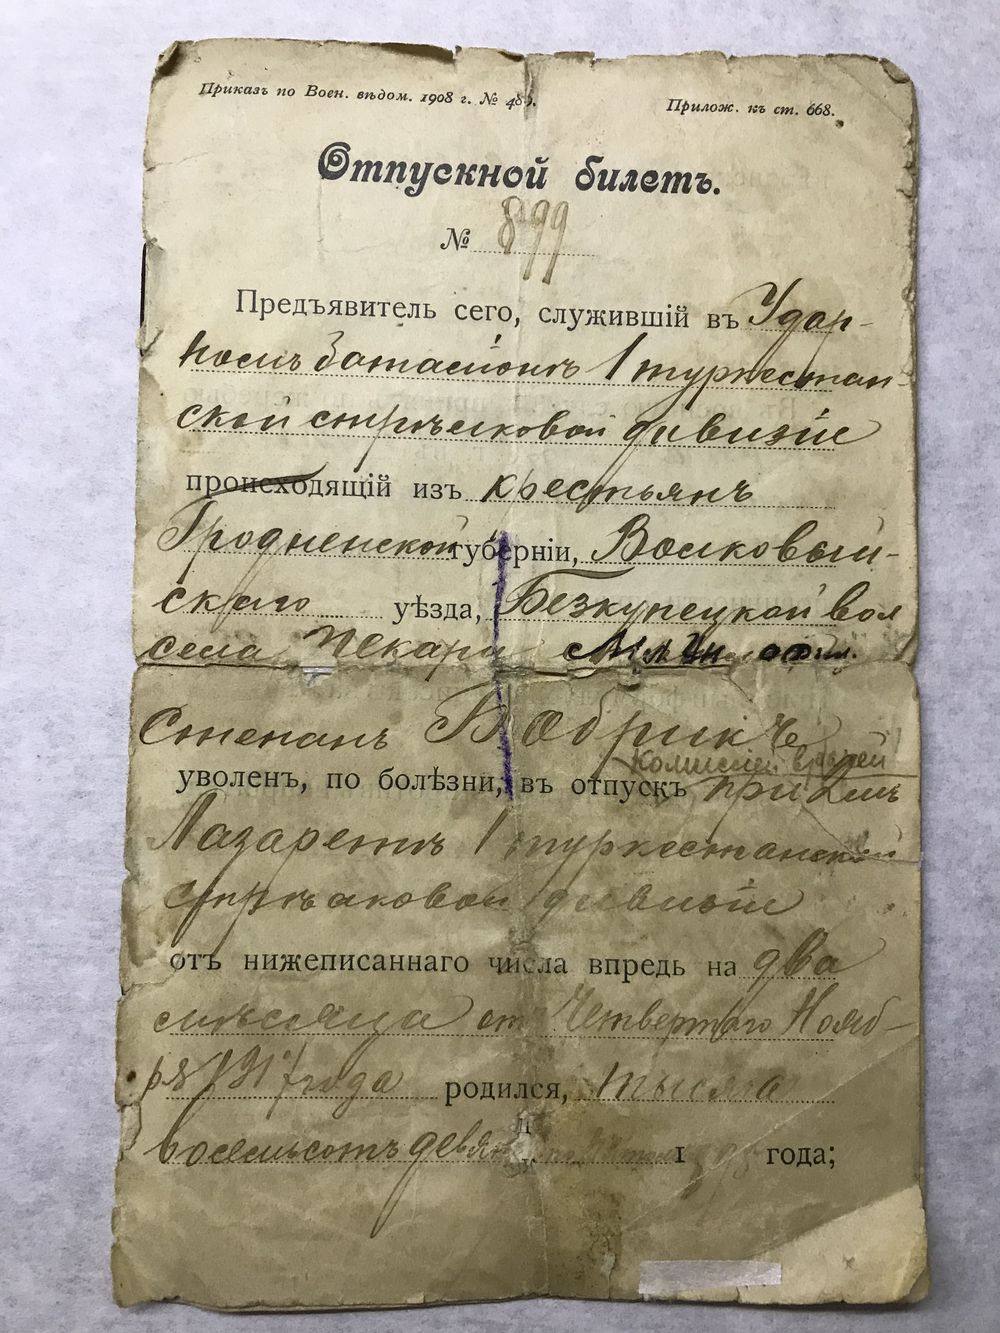 Приказъ по Воен. вѣдом. 1908 г. №
Прилож. къ ст. 668.
Отпускной билетъ.
№ 899
Предъявитель сего, служившій въ Удар-
номъ баталіонѣ 1 туркестан-
ской стрѣлковой дивизіи
происходящій изъ крестьянъ
Гродненской губерніи, Волковый-
скаго уѣзда, Безкупецкой вол
села Пекари
Степанъ Бобрикъ
комиссіей врачей
уволенъ, по болѣзни, въ отпускъ при
Лазаретѣ 1 туркестанской
стрѣлковой дивизіи
отъ нижеписаннаго числа впредь на два
мѣсяца отъ Четвертого Нояб-
ря 1917 года родился, тысяча
восемьсотъ года;